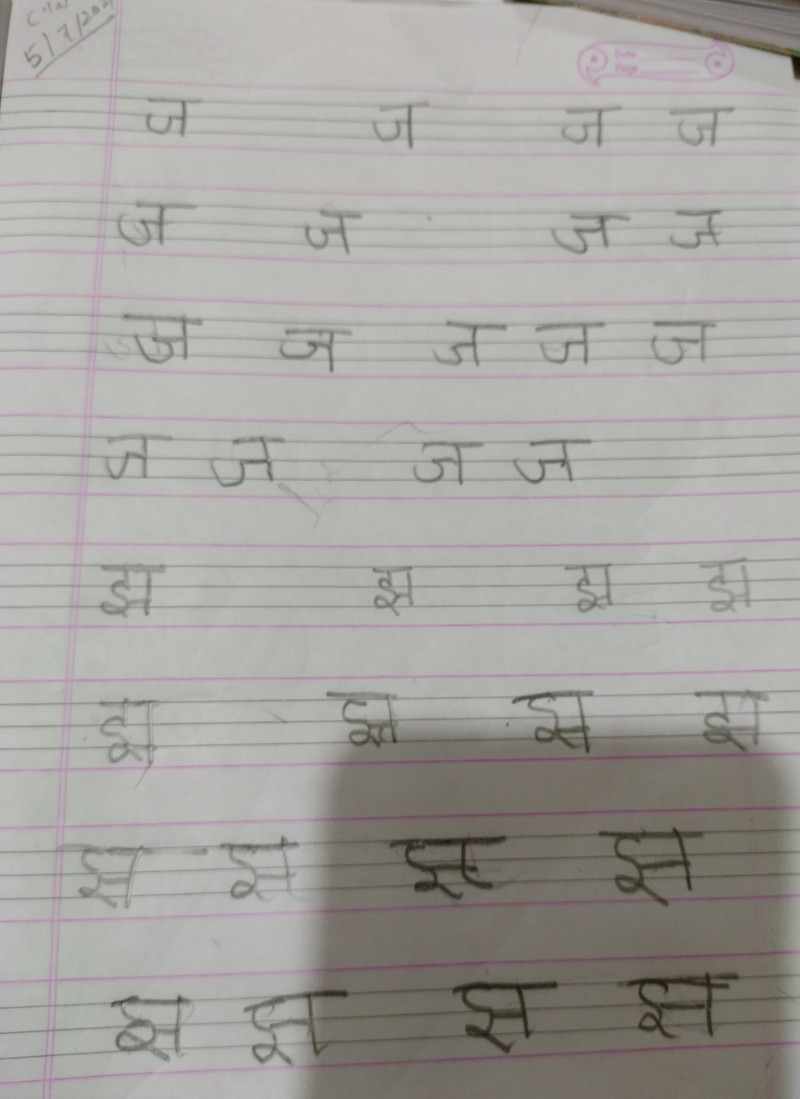 5/7/202
Date
Page
ज ज ज ज
ज ज ज ज
ज ज ज ज ज
ज ज ज ज
झ झ झ झ
झ झ झ झ
झ झ झ झ
झ झ झ झ